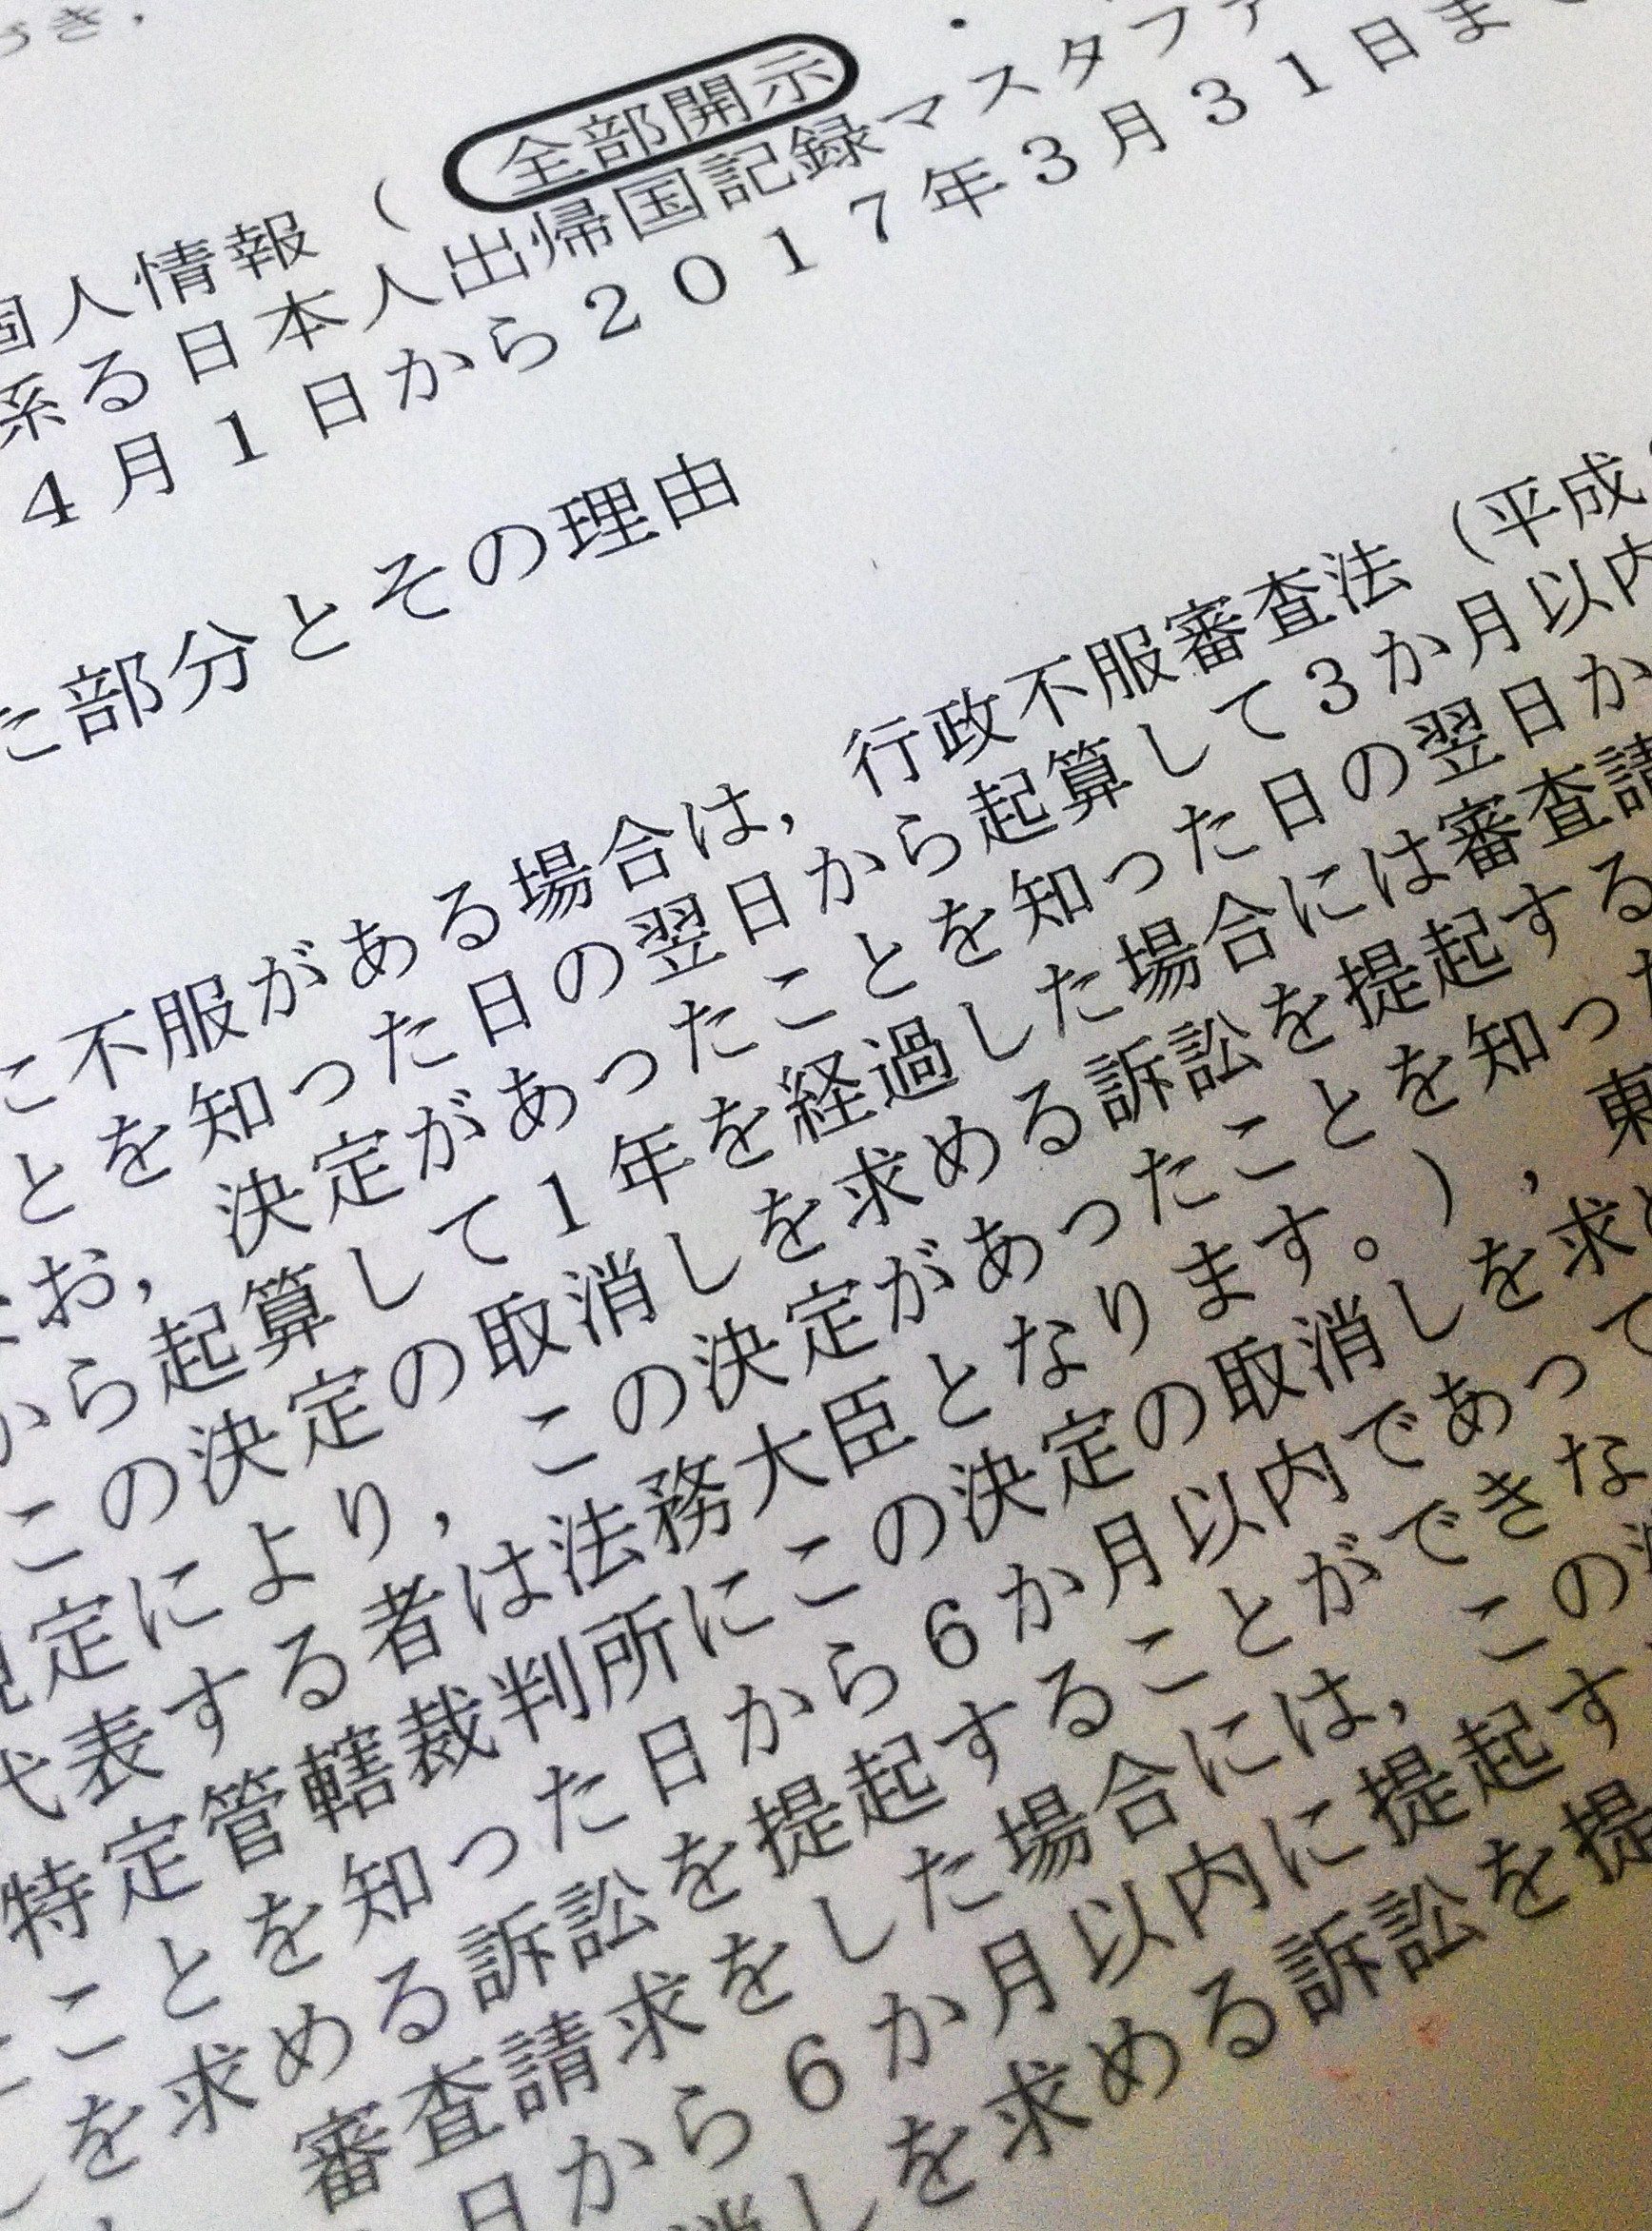 づき，
個人情報（全部開示・
係る日本人出帰国記録マスタファ
4月1日から2017年3月31日まで
た部分とその理由
に不服がある場合は，行政不服審査法（平成
とを知った日の翌日から起算して3か月以内
なお，決定があったことを知った日の翌日か
から起算して1年を経過した場合には審査請
この決定の取消しを求める訴訟を提起する
規定により，この決定があったことを知った
代表する者は法務大臣となります。），東
特定管轄裁判所にこの決定の取消しを求め
たことを知った日から6か月以内であって
しを求める訴訟を提起することができな
審査請求をした場合には，この決
日から6か月以内に提起す
消しを求める訴訟を提